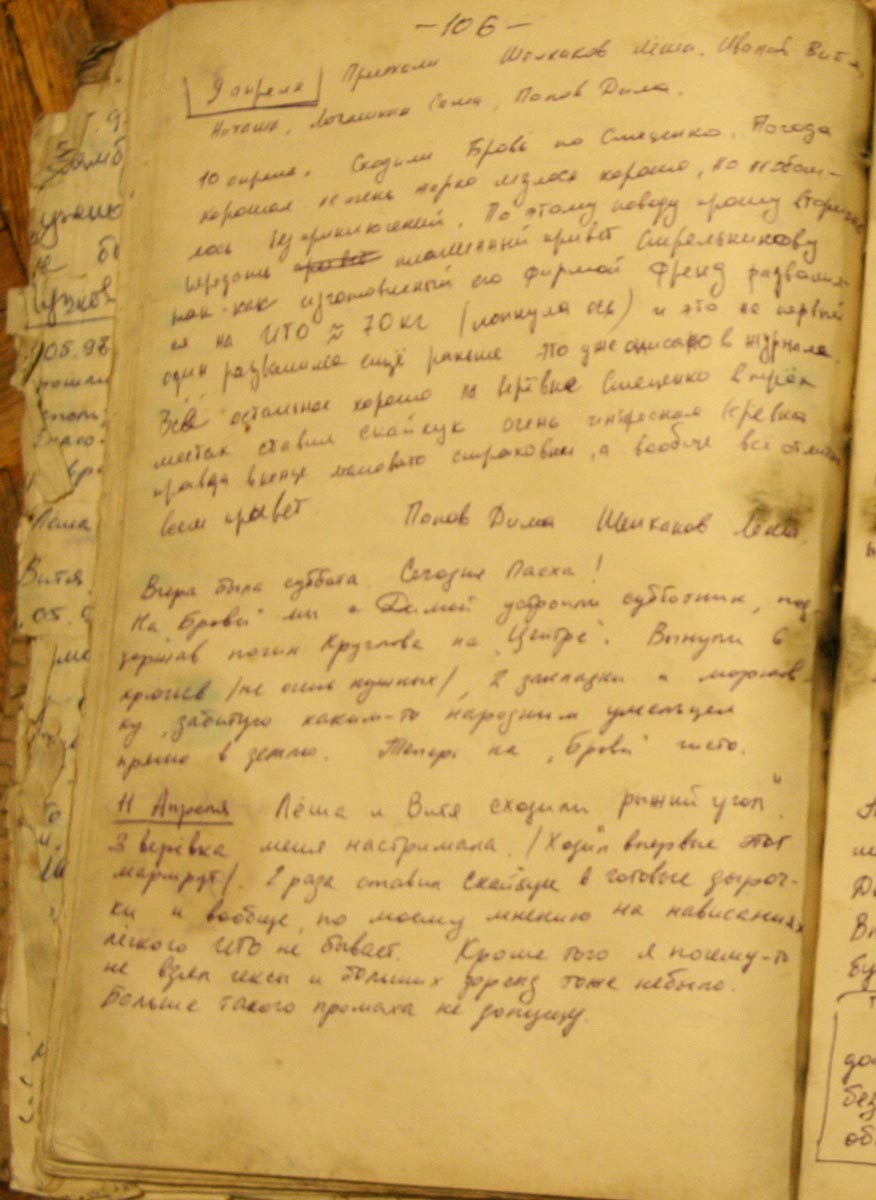 -106-
9 апреля Приехали Шелхаков Лёша. Иванов Витя,
Наташа, Логашкина Саша, Попов Дима.
10 апреля. Сходили Бровь по Смеценко. Погода
хорошая не очень жарко лезлось хорошо, но не обош-
лось без приключений. По этому поводу прошу вторично
передать пламенный привет Стрельникову
так-как изготовленый его фирмой Френд развалил-
ся на ИТО ≈ 70 кг (лопнула ось) и это не первый
один развалился ещё раньше это уже описано в журнале.
Всё остальное хорошо на верёвке Смеценко в трёх
местах ставил скайхук очень интересная верёвка
правда в конце маловато страховки, а вообще всё отлично
всем привет. Попов Дима Шелхаков Лёша.
Вчера была суббота. Сегодня Пасха!
На "Брови" мы с Димой устроили субботник, под-
держав почин Круглова на "Центре". Вынули 6
крючьев /не очень нужных/, 2 закладки и морковь-
ку, забитую каким-то народным умельцем
прямо в землю. Теперь на "Брови" чисто.
11 Апреля Лёша и Витя сходили "рыжий угол".
3 верёвка меня настримала. /Ходил впервые этот
маршрут/. 2 раза ставил Скайхук в готовые дыроч-
ки и вообще, по моему мнению на нависаниях
лёгкого ИТО не бывает. Кроме того я почему-то
не взял гексы и больших френд тоже небыло.
Больше такого промаха не допущу.